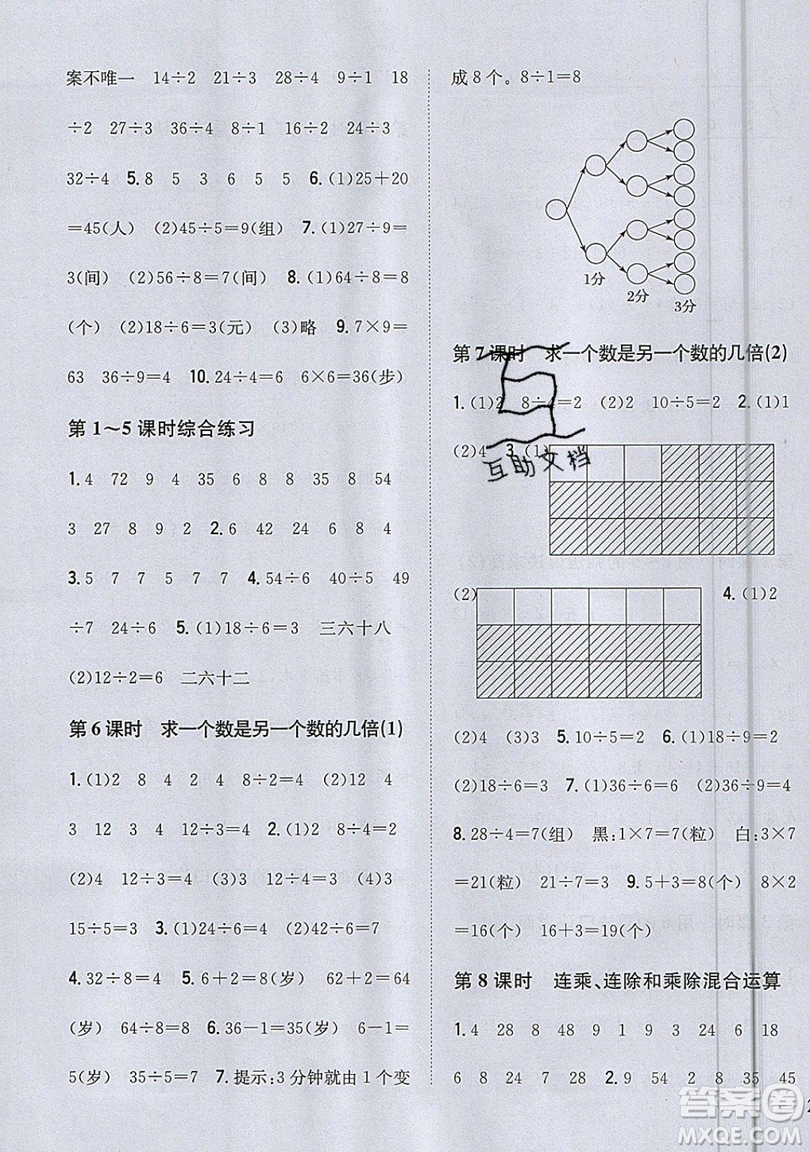 案不唯一 14÷2 21÷3 28÷4 9÷1 18
÷2 27÷3 36÷4 8÷1 16÷2 24÷3
32÷4 5.8 5 3 6 5 5 6.(1)25+20
=45(人) (2)45÷5=9(组) 7.(1)27÷9=
3(间) (2)56÷8=7(间) 8.(1)64÷8=8
(个) (2)18÷6=3(元) (3)略 9.7×9=
63 36÷9=4 10.24÷4=6 6×6=36(步)
第1~5课时综合练习
1.4 72 9 4 35 6 8 8 35 8 54
3 27 8 9 2 2.6 42 24 6 8 4
3.5 7 7 5 7 7 4.54÷6 40÷5 49
÷7 24÷6 5.(1)18÷6=3 三六十八
(2)12÷2=6 二六十二
第6课时 求一个数是另一个数的几倍(1)
1.(1)2 8 4 2 4 8÷2=4 (2)12 4
3 12 3 4 12÷3=4 2.(1)2 8÷4=2
(2)4 12÷3=4 (3)3 12÷4=3 (4)3
15÷5=3 3.(1)24÷6=4 (2)48÷6=8
4.32÷8=4 5.6+2=8(岁) 62+2=64
(岁) 64÷8=8 6.36-1=35(岁) 6-1=
5(岁) 35÷5=7 7.提示:3分钟就由1个变
成8个。8÷1=8
1分
2分
3分
第7课时 求一个数是另一个数的几倍(2)
1.(1)2 8÷4=2 (2)2 10÷5=2 2.(1)1
(2)4 3.(1)
互助文档
(2) 4.(1)2
(2)4 (3)3 5.10÷5=2 6.(1)18÷9=2
(2)18÷6=3 7.(1)36÷6=6 (2)36÷9=4
8.28÷4=7(组) 黑:1×7=7(粒) 白:3×7
=21(粒) 21÷7=3 9.5+3=8(个) 8×2
=16(个) 16+3=19(个)
第8课时 连乘、连除和乘除混合运算
1.4 28 8 48 9 9 3 24 6 18
6 8 24 7 56 2.9 54 2 8 35 45
答案圈
MXQE.COM